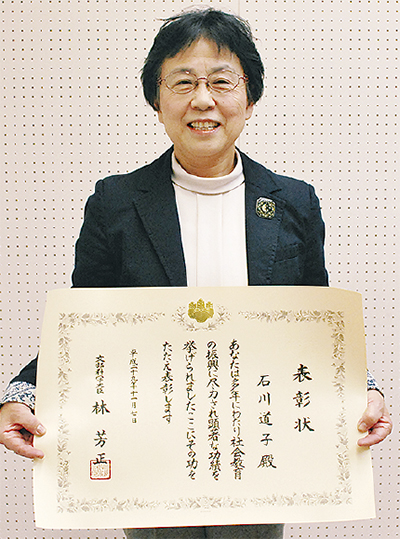 表彰状
石川道子殿
あなたは多年にわたり社会教育
の振興に尽力され顕著な功績を
挙げられましたここにその功を
たたえ表彰します
平成二十九年十一月七日
文部科学大臣 林芳正